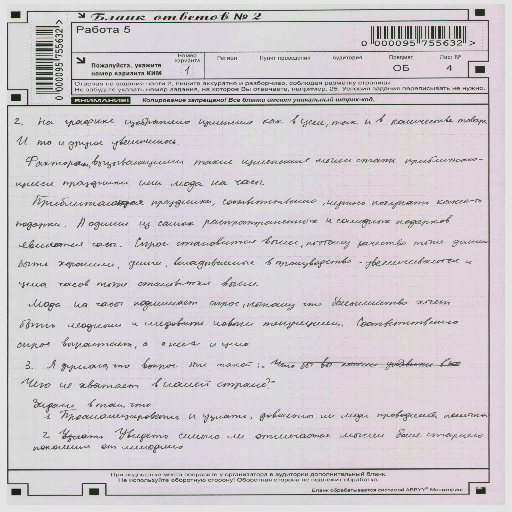 Бланк ответов № 2
Работа 5
0 000095 755632
0 000095 755632
Пожалуйста, укажите номер варианта КИМ
Номер варианта
1
Регион
Пункт проведения
Аудитория
Предмет
ОБ
Лист №
4
Отвечая на задания части 2, пишите аккуратно и разборчиво, соблюдая разметку страницы.
Не забудьте указать номер задания, на которое Вы отвечаете, например, 25. Условия задания переписывать не нужно.
ВНИМАНИЕ! Копирование запрещено! Все бланки имеют уникальный штрих-код.
2. На графике изображено изменения как в цене, так и в количестве товара
И то и другое увеличилось.
Факторами, вызывающими такие изменения могли стать приближаю-
щиеся праздники или мода на часы.
праздника, соответственно, нужно покупать
подарки. А одним из самых распространённых и подарков
являются часы. Спрос становится выше, поэтому качество тоже должно
быть хорошим, деньги, вкладываемые в производство - увеличиваются и
цена часов тоже становится выше.
Мода на часы поднимает спрос, потому что большинство хочет
быть модными и следовать новым тенденциям. Соответственно
спрос возрастает, а с ней и цена
3. Я думаю, что вопрос был такой:
Чего не хватает в нашей стране?"
Задачи в том, что
1. Проанализировать и узнать, довольны ли люди проводимой политикой
2. Увидеть сильно ли отличается мнение более старшего
поколения от молодого
При недостатке места попросите у организатора в аудитории дополнительный бланк.
Не используйте оборотную сторону! Оборотная сторона не подлежит обработке.
Бланк обрабатывается системой ABBYY® Мониторинг